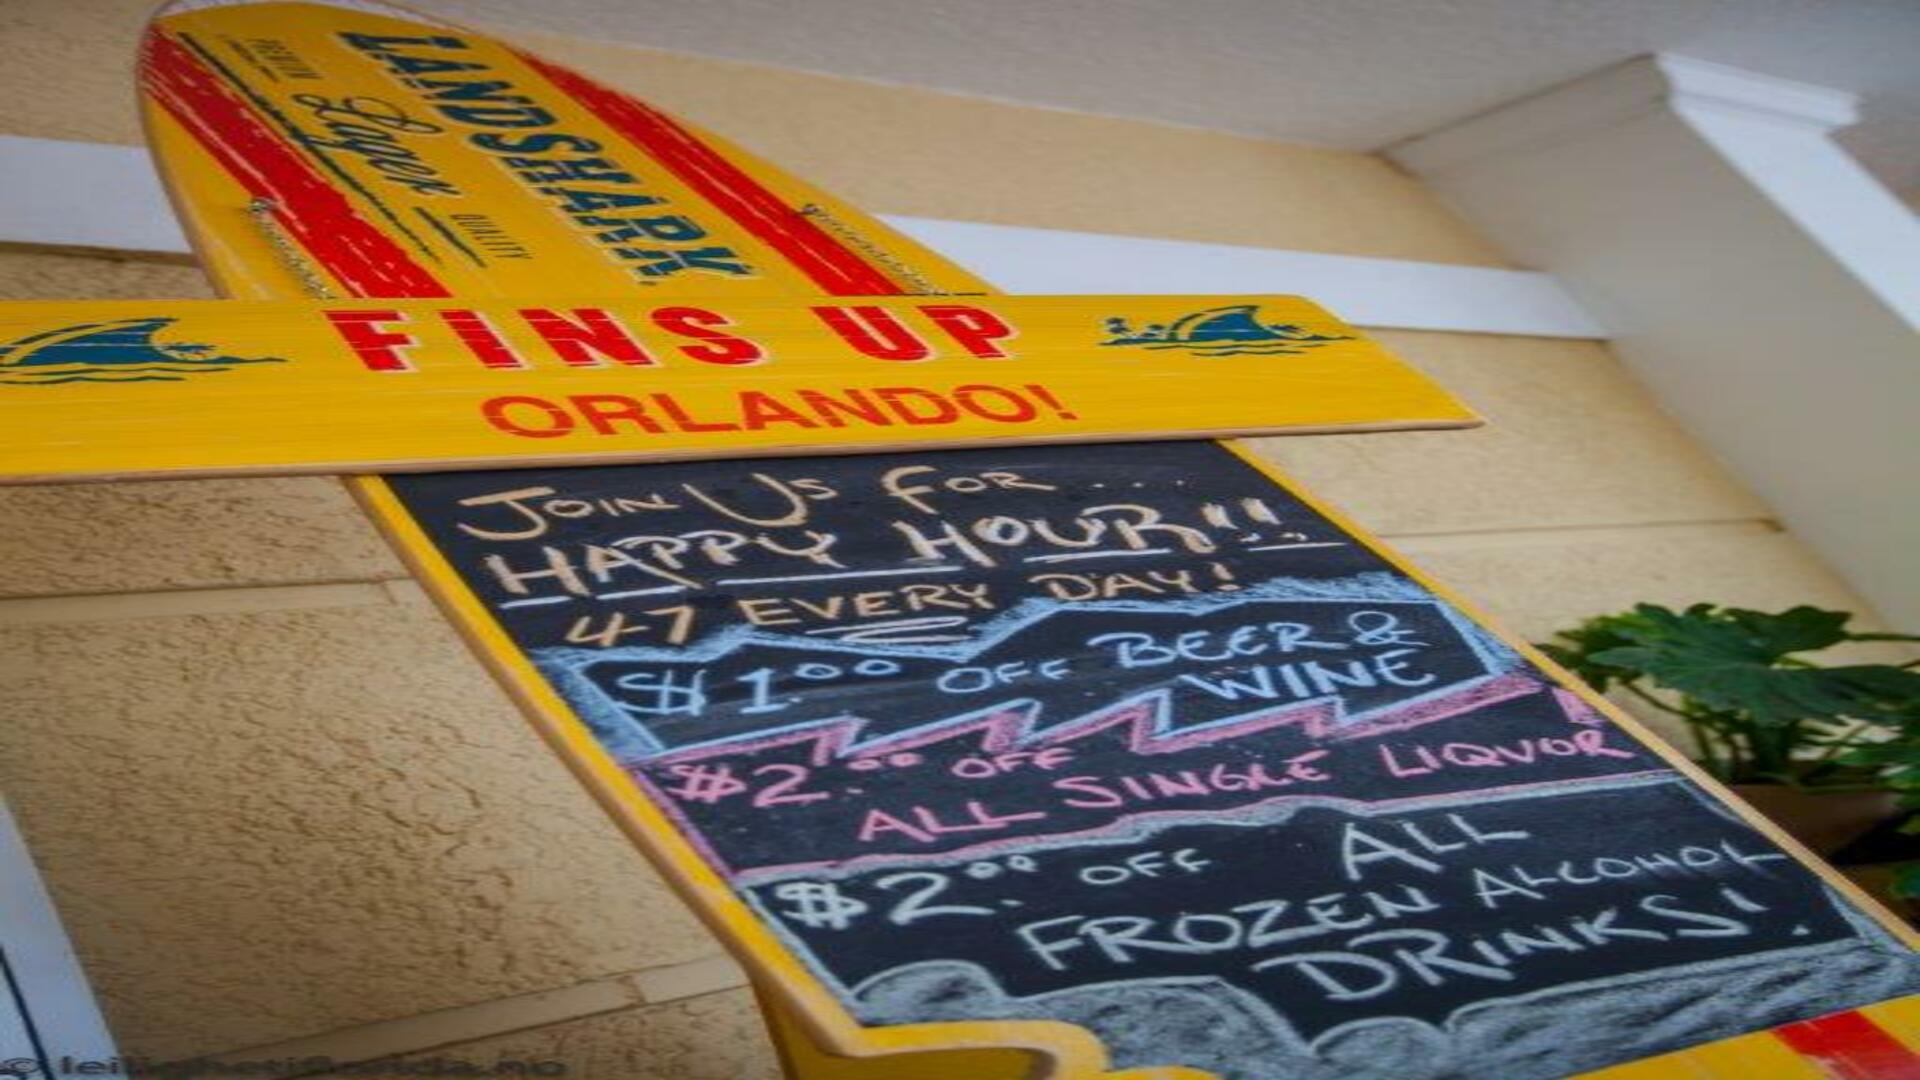 LANDSHARK
PREMIUM Lager QUALITY
FINS UP
ORLANDO!
JOIN US FOR....
HAPPY HOUR!!
4-7 EVERY DAY!
$1.00 OFF BEER &
WINE
$2.00 OFF
ALL SINGLE LIQUOR
$2.00 OFF ALL
FROZEN ALCOHOL
DRINKS!